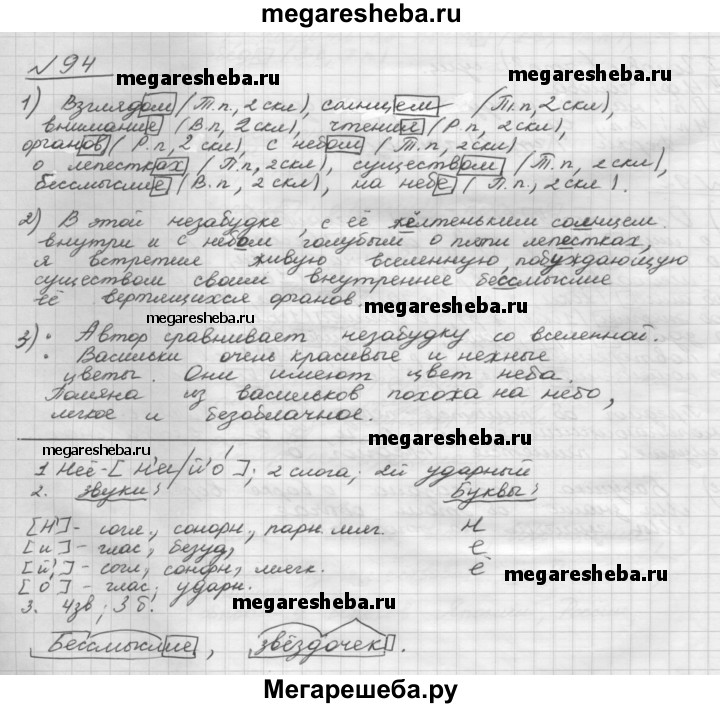 megaresheba.ru
№94
megaresheba.ru megaresheba.ru
1) Взглядом (Т.п, 2 скл), солнцем (Т.п, 2 скл),
внимание (В.п, 2 скл), чтения (Р.п, 2 скл),
органов (Р.п, 2 скл), с небом (Т.п, 2 скл)
о лепестках (П.п, 2скл), существом (Т.п, 2скл),
бессмыслие (В.п, 2 скл), на небе (П.п., 2скл).
2) В этой незабудке, с её жёлтеньким солнцем
внутри и с небом голубым о пяти лепестках,
я встретил живую вселенную, побуждающую
существом своим внутреннее бессмыслие
её вертящихся органов.
megaresheba.ru
megaresheba.ru
3) • Автор сравнивает незабудку со вселенной.
• Васильки очень красивые и нежные
цветы. Они имеют цвет неба.
Поляна из васильков похожа на небо,
легкое и безоблачное.
megaresheba.ru
megaresheba.ru
1 Неё-[н'иэ/й'о́]; 2 слога; 2й ударный
2. Звуки: Буквы:
[н']- согл., сонорн., парн. мягк. н
[и]- глас, безуд, е
[й']- согл, сонорн, мягк. ё
[о́]- глас; ударн.
megaresheba.ru
megaresheba.ru
3. 4зв; 3 б.
Бессмыслие, звёздочек.
Мегарешеба.ру